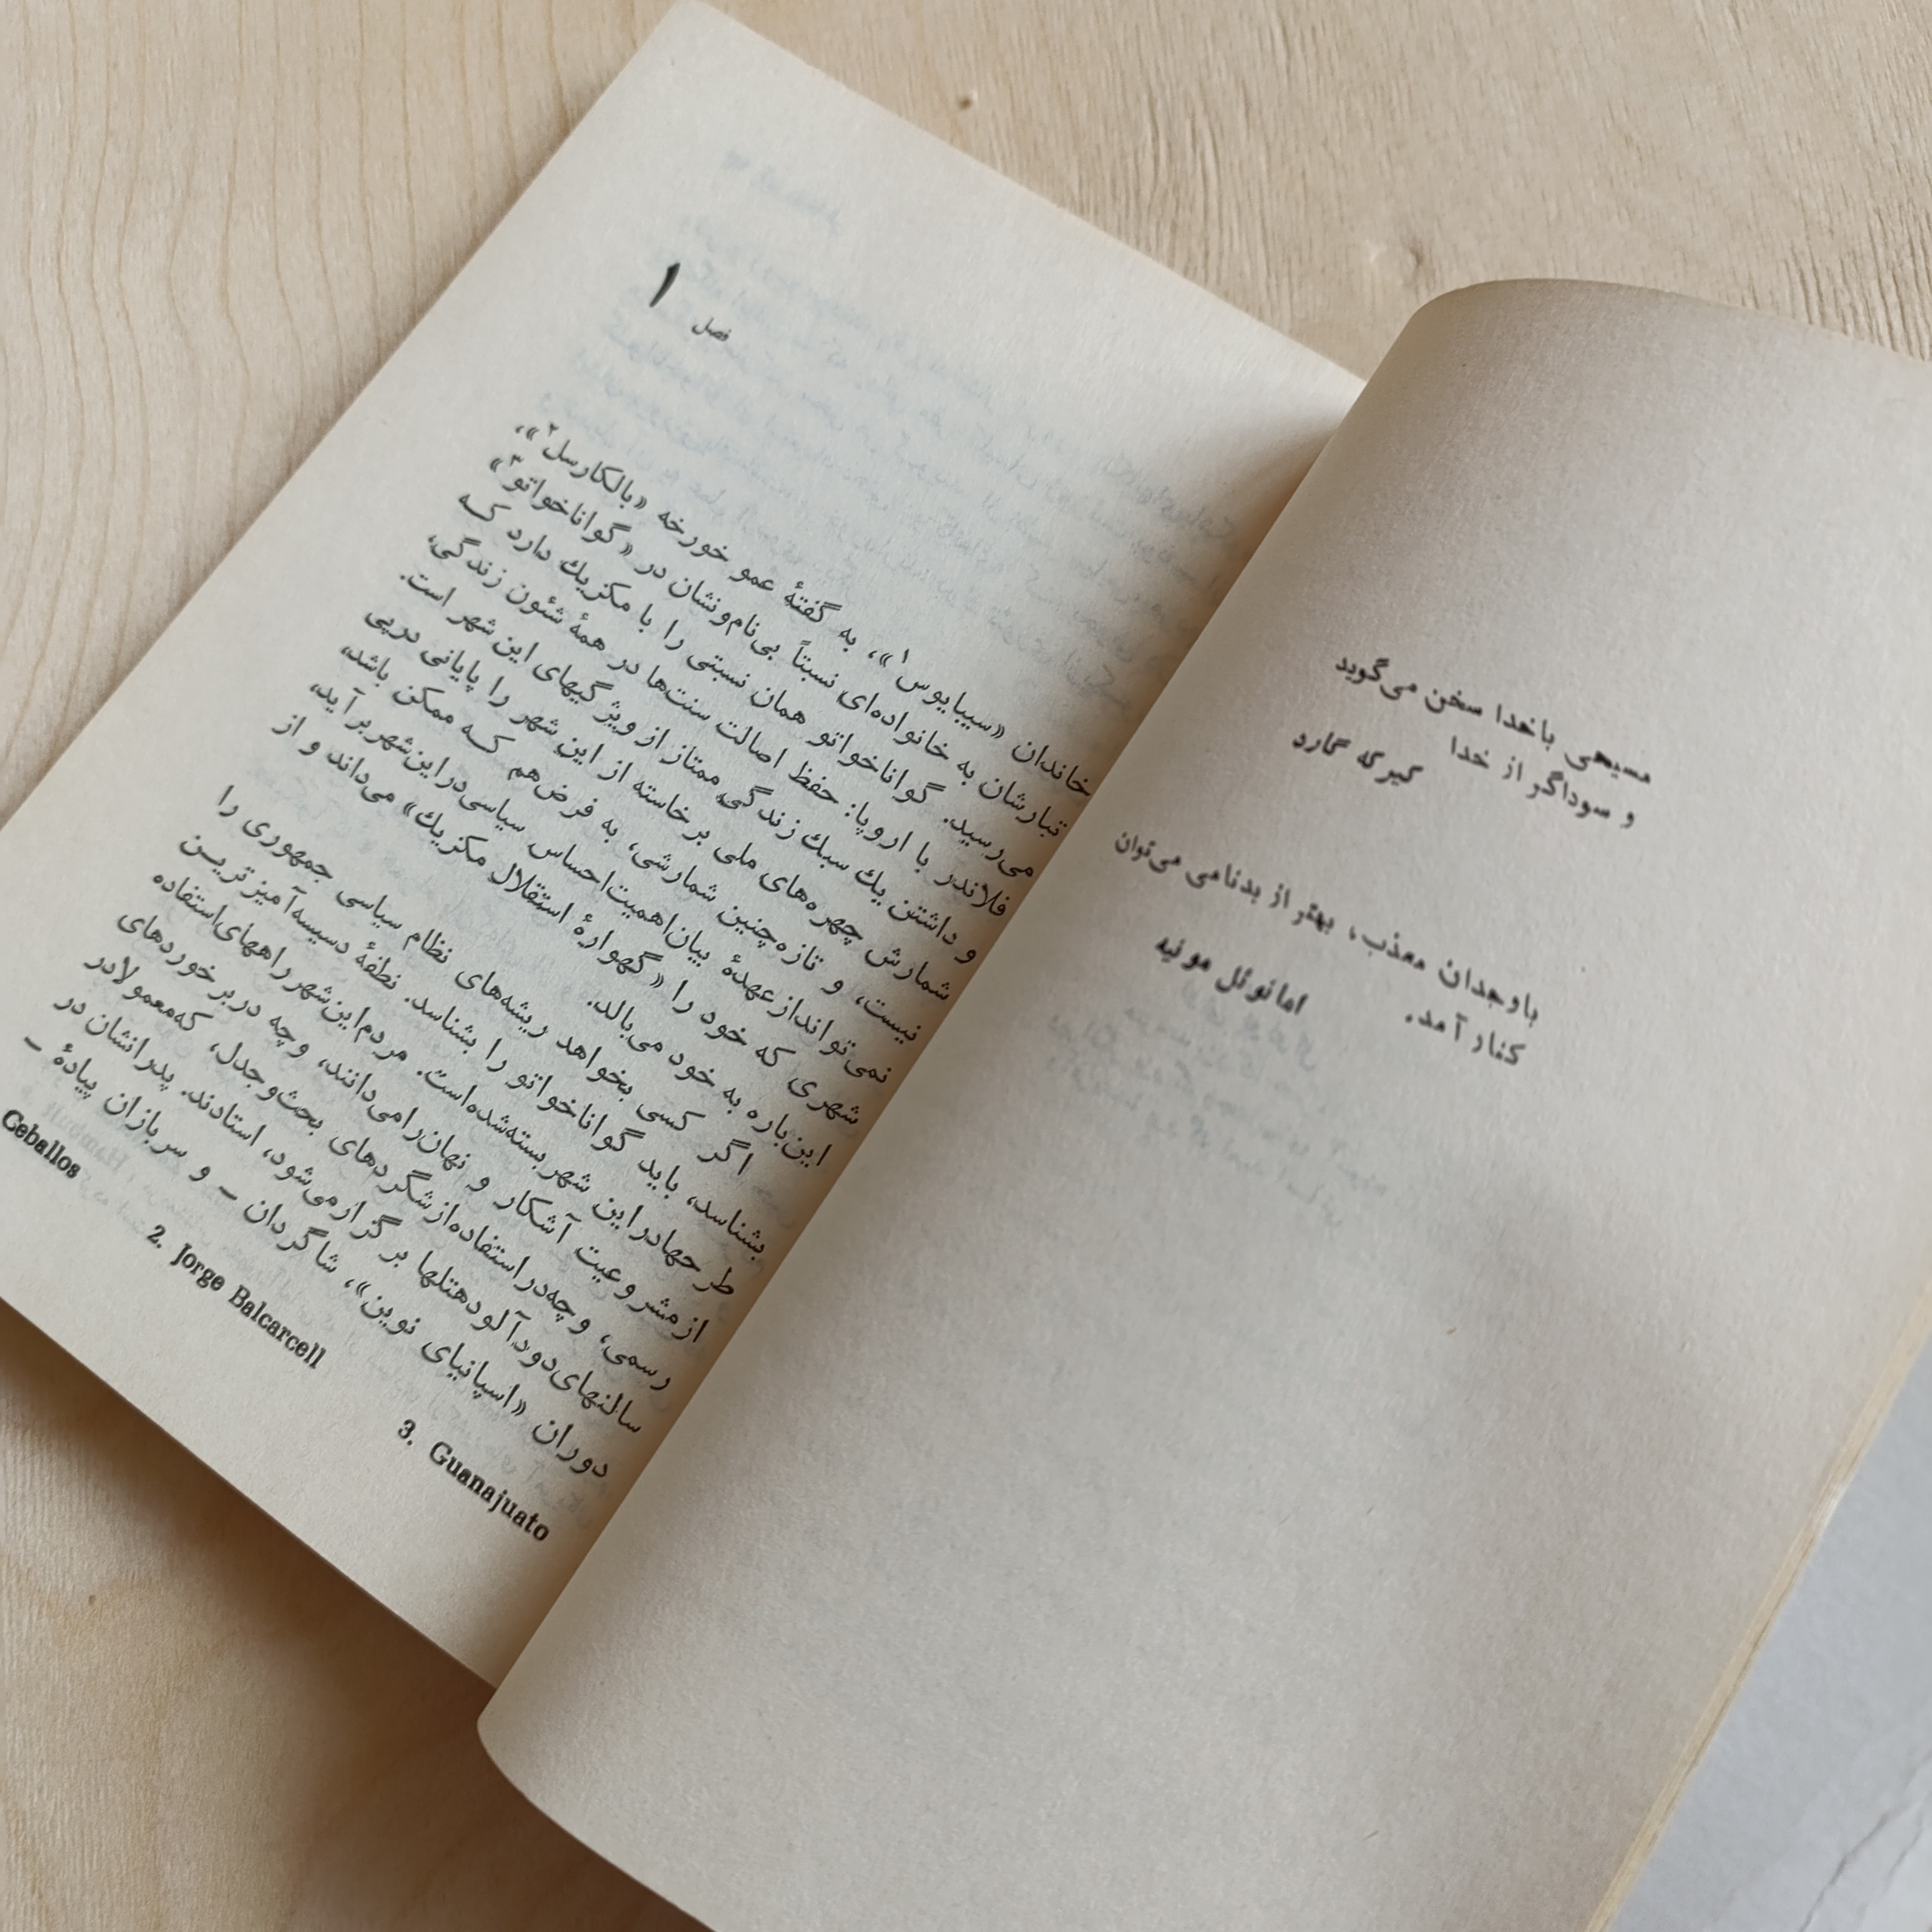 مسیحی با خدا سخن می‌گوید
و سوداگر از خدا
کیرکه گارد
با وجدان معذب، بهتر از بدنامی می‌توان
کنار آمد.
امانوئل مونیه
فصل ۱
خاندان «سیبایوس۱»، به گفتهٔ عمو خورخه «بالکارسل۲»،
تبارشان به خانواده‌ای نسبتاً بی‌نام‌ونشان در «گواناخواتو۳»
می‌رسید. گواناخواتو همان نسبتی را با مکزیك دارد که
فلاندر با اروپا: حفظ اصالت سنت‌ها در همهٔ شئون زندگی،
و داشتن یك سبك زندگی ممتاز از ویژگیهای این شهر است.
شمارش چهره‌های ملی برخاسته از این شهر را پایانی درپی
نیست، و تازه چنین شمارشی، به فرض‌هم که ممکن باشد،
نمی‌تواند از عهدهٔ بیان اهمیت احساس سیاسی در این‌شهر برآید،
شهری که خود را «گهوارهٔ استقلال مکزیك» می‌داند و از
این‌باره به خود می‌بالد.
اگر کسی بخواهد ریشه‌های نظام سیاسی جمهوری را
بشناسد، باید گواناخواتو را بشناسد. نطفهٔ دسیسه‌آمیزترین
طرحها در این شهر بسته‌شده‌است. مردم این‌شهر راههای‌استفاده
از مشروعیت آشکار و نهان را می‌دانند، و چه در برخوردهای
رسمی، و چه در استفاده از شگردهای بحث‌وجدل، که معمولا در
سالنهای دودآلود هتلها برگزار می‌شود، استادند. پدرانشان در
دوران «اسپانیای نوین»، شاگردان – و سربازان پیادهٔ –
Ceballos
2. Jorge Balcarcell
3. Guanajuato